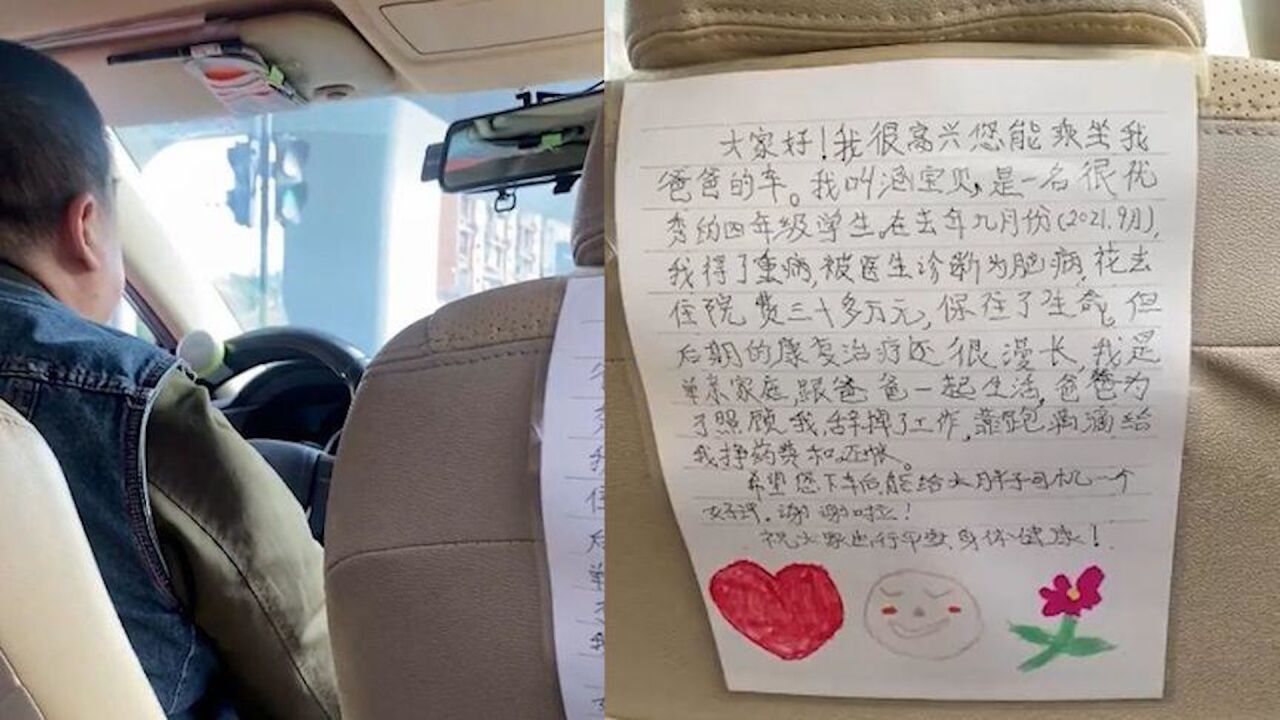 大家好！我很高兴您能乘坐我
爸爸的车。我叫涵宝贝，是一名很优
秀的四年级学生。在去年九月份(2021.9月)，
我得了重病，被医生诊断为脑病，花去
住院费三十多万元，保住了生命。但
后期的康复治疗还很漫长，我是
单亲家庭，跟爸爸一起生活，爸爸为
了照顾我，辞掉了工作，靠跑滴滴给
我挣药费和还帐。
希望您下车后，能给大胖子司机一个
好评。谢谢啦！
祝大家出行平安、身体健康！